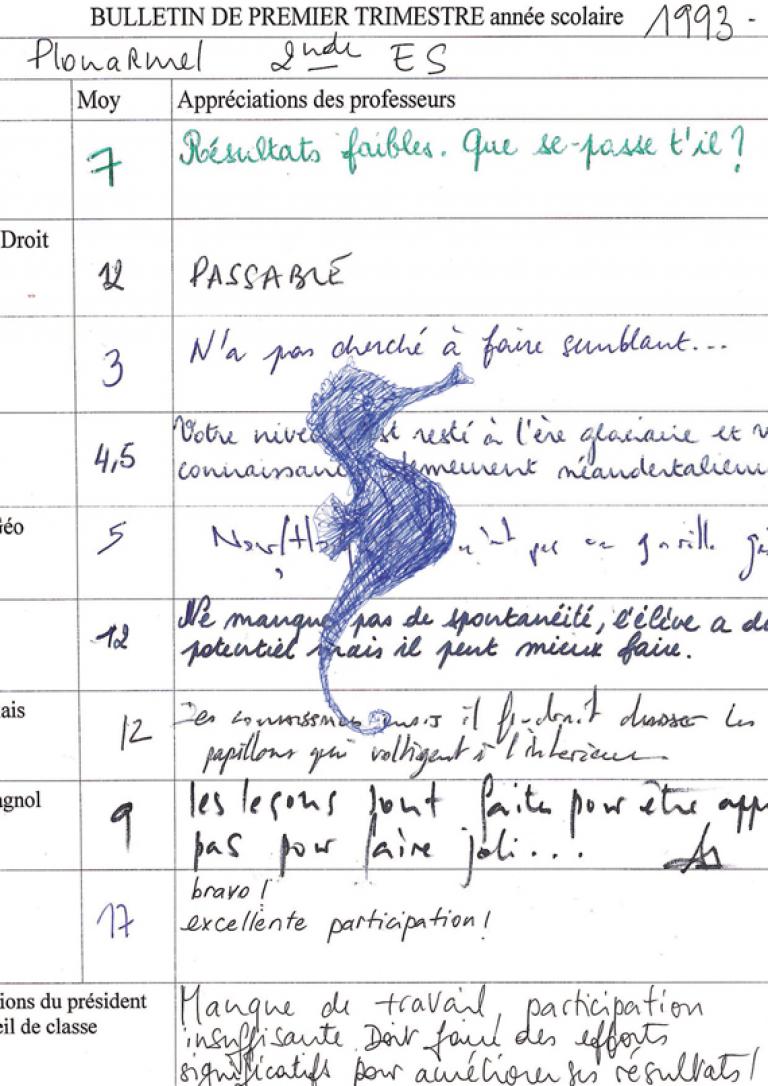 BULLETIN DE PREMIER TRIMESTRE année scolaire 1993 -
Plouarmel 2nde ES
Moy Appréciations des professeurs
7 Résultats faibles. Que se-passe t'il ?
Droit
12 PASSABLE
3 N'a pas cherché à faire semblant...
Votre nive st resté à l'ère glaciaire et v
4,5
connaissan mement néandertalienn
Géo
5 n'est pas un gorille
Ne manque pas de spontanéité, l'élève a d
12
potentiel mais il peut mieux faire.
ais
12 Des connaissances mais il faudrait chasser les
papillons qui voltigent à l'intérieur
agnol
9 les leçons sont faites pour être app
pas pour faire joli...
bravo !
17 excellente participation !
ions du président
eil de classe
Manque de travail, participation
insuffisante. Doit faire des efforts
significatifs pour améliorer ses résultats !